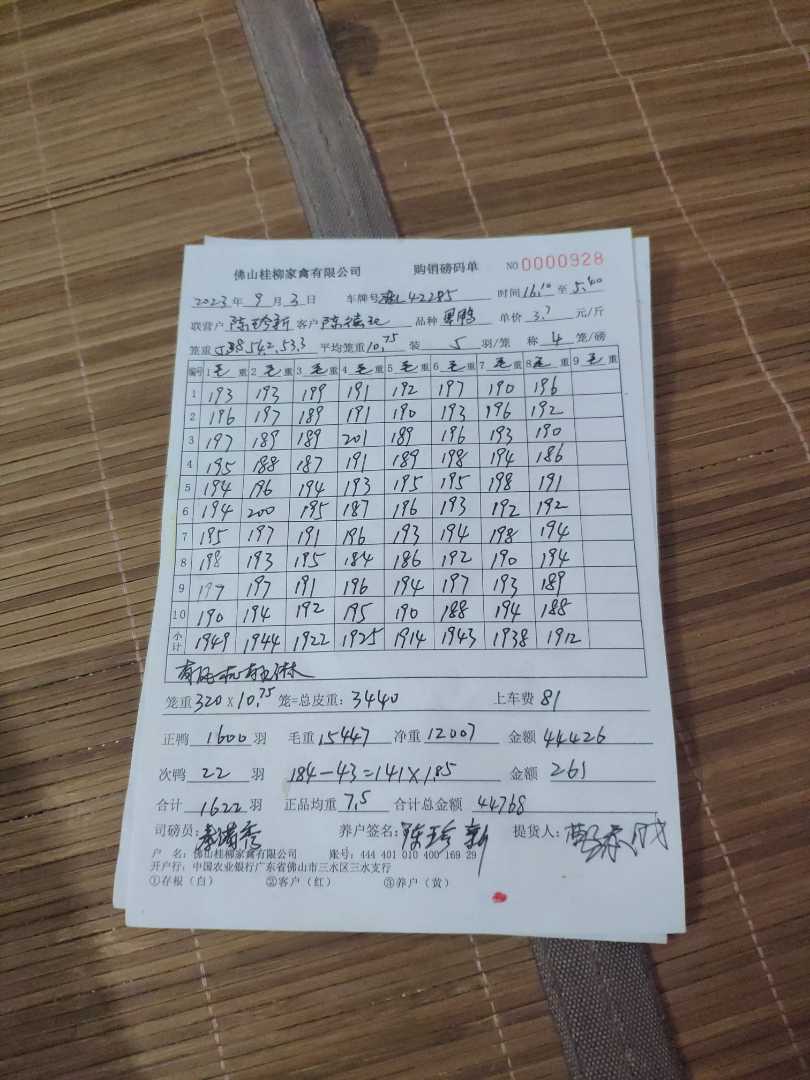 佛山桂柳家禽有限公司 购销磅码单 NO 0000928
2023年 9 月 3 日 车牌号 42285 时间 16:10 至 5:40
联营户 陈珍新 客户 陈德 品种 单价 3.7 元/斤
笼重 538 542.533 平均笼重 10.75 装 5 羽/笼 称 4 笼/磅
编号 1毛重 2毛重 3毛重 4毛重 5毛重 6毛重 7毛重 8毛重 9毛重
1 193 193 199 191 192 197 190 196
2 196 197 189 191 190 193 196 192
3 197 189 189 201 189 196 193 190
4 195 188 187 191 189 198 194 186
5 194 196 194 193 195 195 198 191
6 194 200 195 187 196 193 192 192
7 195 197 191 196 193 194 198 194
8 198 193 195 184 186 192 190 194
9 197 197 191 196 194 197 193 189
10 190 194 192 195 190 188 194 188
小计 1949 1944 1922 1925 1914 1943 1938 1912
笼重 320 X 10.75 笼=总皮重：3440 上车费 81
正鸭 1600 羽 毛重 15447 净重 12007 金额 44426
次鸭 22 羽 184-43=141×1.85 金额 261
合计 1622 羽 正品均重 7.5 合计总金额 44768
司磅员： 养户签名：陈珍新 提货人：
户 名：佛山桂柳家禽有限公司 账号：444 401 010 400 169 29
开户行：中国农业银行广东省佛山市三水区三水支行
①存根（白） ②客户（红） ③养户（黄）